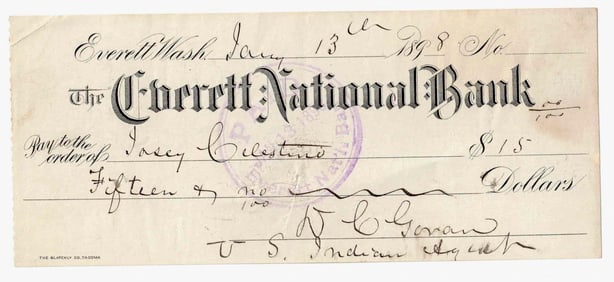 Everett Wash. Jany 13th 1898 No.
The Everett National Bank
Pay to the order of Josey Celestine $15 00/100
Fifteen & no/100 Dollars
D C Govan
U S. Indian Agent
PAID
THE BLATCHLY CO. TACOMA